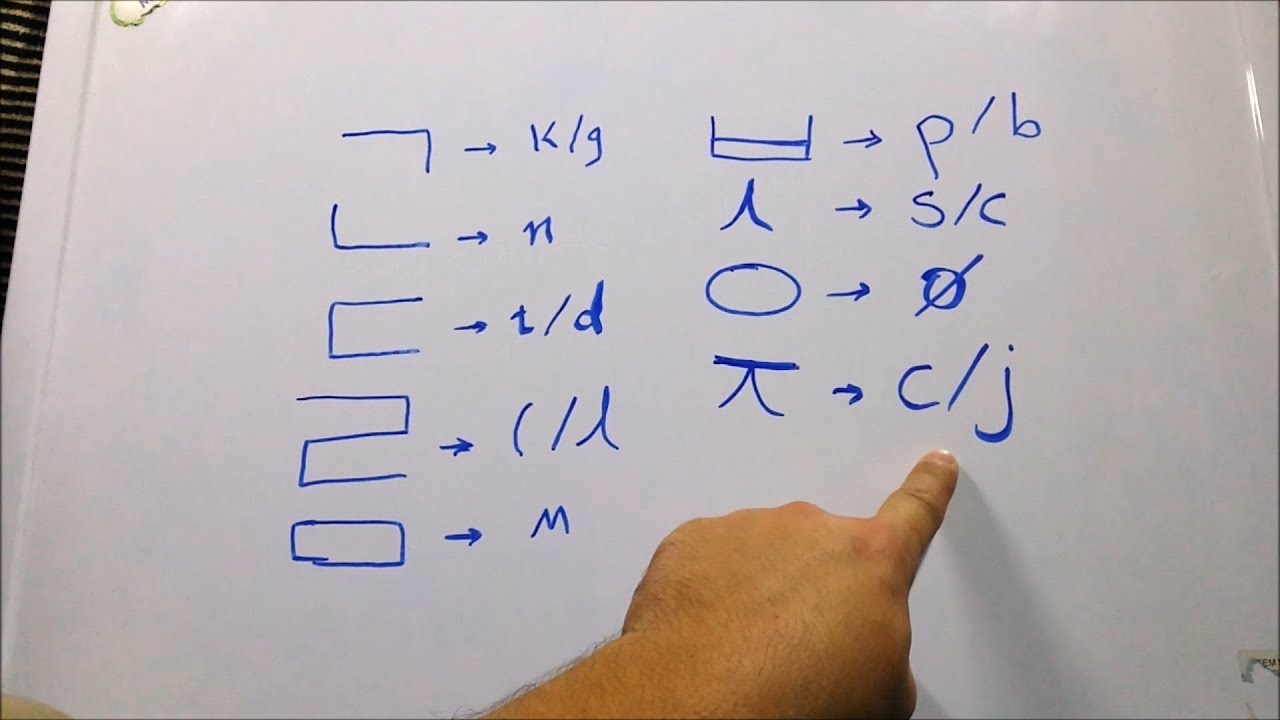 ㄱ → K/g
ㄴ → n
ㄷ → t/d
ㄹ → r/l
ㅁ → m
ㅂ → p/b
ㅅ → s/c
ㅇ → ø
ㅈ → c/j